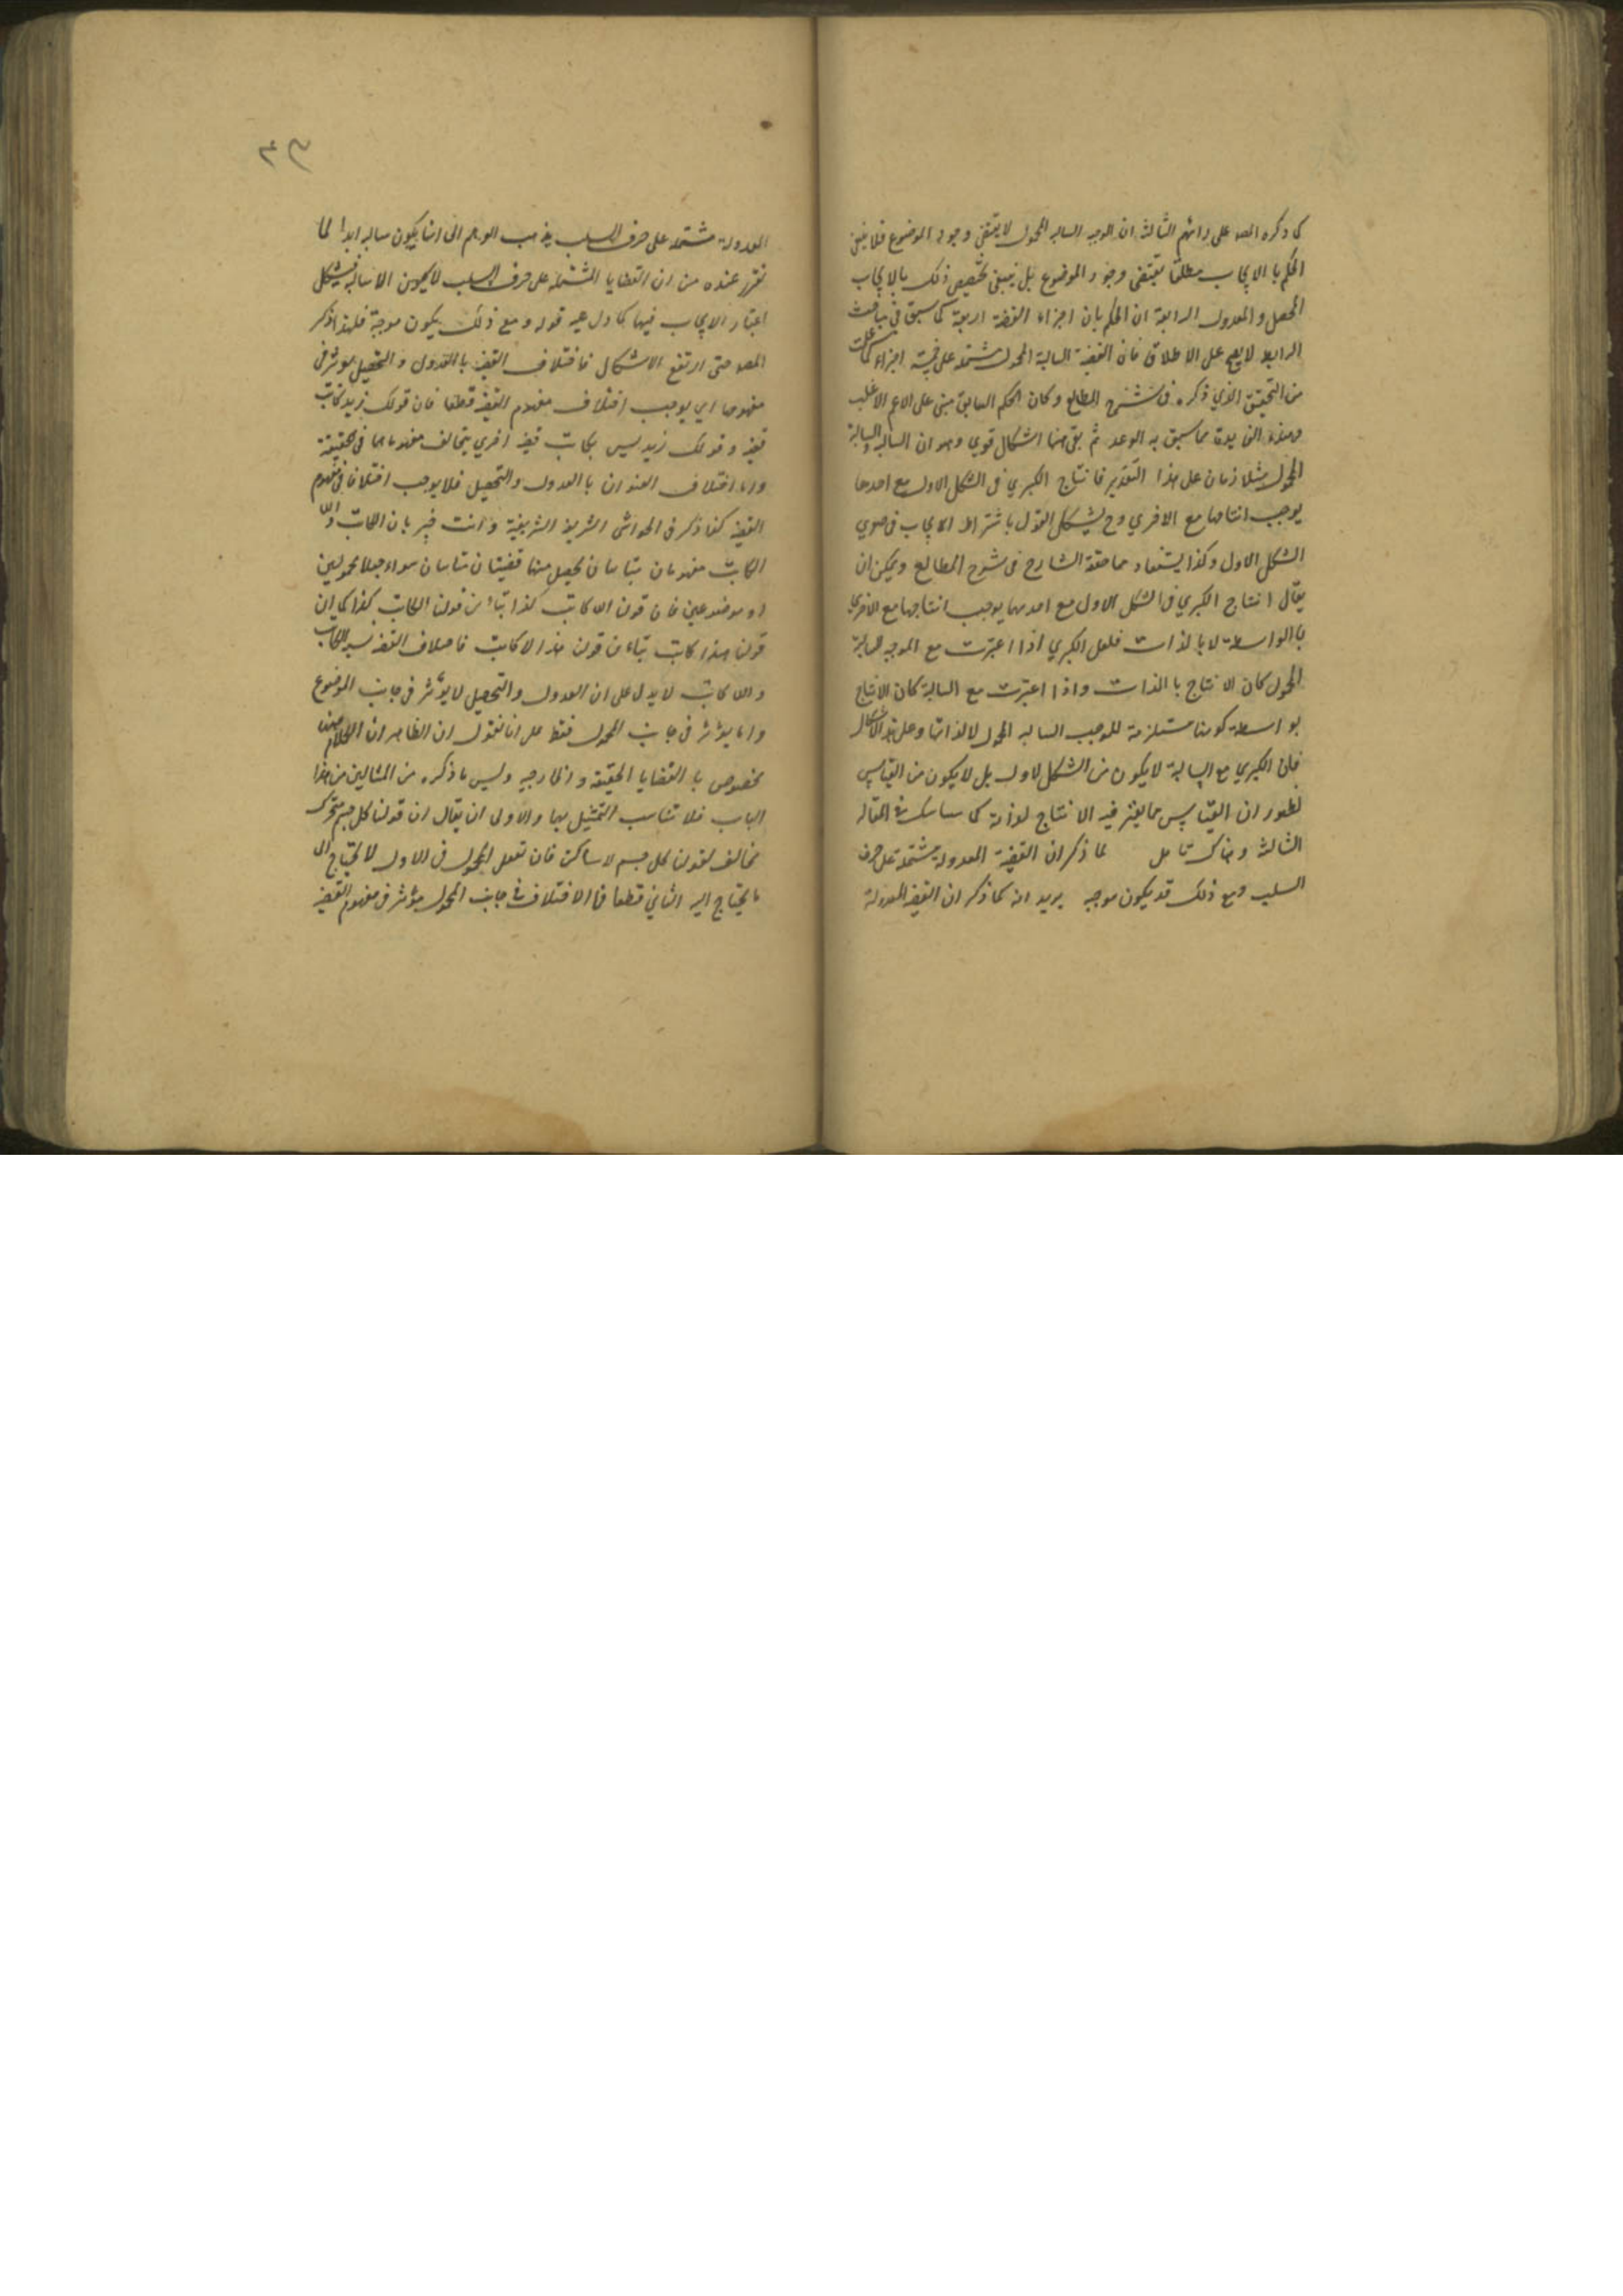 كما ذكره المصه على رائهم الثالثة ان الموجبه السالبه المحمول لا يقتضى وجود الموضوع فلا ينبغى
الحكم بالايجاب مطلقا يقتضى وجود الموضوع بل ينبغى تخصيص ذلك بالايجاب
المحصل والمعدول الرابعة ان الحكم بان اجزاء القضية اربعة كما سبق فى مباحث
الرابط لا يصح على الاطلاق فان القضية السالبة المحمول مشتملة على خمسة اجزاء كما علمت
من التحقيق الذي ذكره فى شرح المطالع وكان الحكم السابق مبنى على الاعم الاغلب
وهذه الفايدة مما سبق به الوعد ثم بقى هنا اشكال قوي وهو ان السالبه والسالبة
المحمول متلازمان على هذا التقدير فانتاج الكبري فى الشكل الاول مع احدها
يوجب انتاجها مع الاخري وح يشكل القول باشتراط الايجاب فى صغري
الشكل الاول وكذا يستفاد مما حققه الشارح فى شرح المطالع ويمكن ان
يقال انتاج الكبري فى الشكل الاول مع احديهما يوجب انتاجها مع الاخري
بالواسطة لا بالذات فلعل الكبري اذا اعتبرت مع الموجبه السالبة
المحمول كان الانتاج بالذات واذا اعتبرت مع السالبة كان الانتاج
بواسطة كونها مستلزمة للموجب السالبه المحمول لا لذاتها وعلى هذا الاشكال
فان الكبري مع السالبة لا يكون من الشكل الاول بل لا يكون من القياس
لظهور ان القياس مما يعتبر فيه الانتاج لذاته كما سياتيك فى المقاله
الثالثة وهناك تامل لما ذكر ان القضية المعدولة مشتملة على حرف
السلب ومع ذلك قد يكون موجبه يريد انه لما ذكر ان القضية المعدولة
٣٩
المعدولة مشتملة على حرف السلب يذهب الوهم الى انها يكون سالبه ابدا لما
تقرر عنده من ان القضايا المشتملة على حرف السلب لا يكون الا سالبه فيشكل
اعتبار الايجاب فيها كما دل عليه قوله ومع ذلك يكون موجبة فلهذا ذكر
المصه حتى ارتفع الاشكال فاختلاف القضية بالعدول والتحصيل موثر فى
مفهومها اي يوجب اختلاف مفهوم القضية قطعا فان قولك زيد كاتب
قضية وقولك زيد ليس بكاتب قضية اخري يتخالف مفهوماهما فى الحقيقة
واما اختلاف العنوان بالعدول والتحصيل فلا يوجب اختلافا فى مفهوم
القضية كذا ذكر فى الحواشى الشريفة الشريفية وانت خبير بان الكاتب واللا
الكاتب مفهومان متباينان يحصل منها قضيتان متباينان سواء جعلا محمولين
او موضوعين فان قولنا اللاكاتب كذا يباين قولنا الكاتب كذا كما ان
قولنا هذا كاتب يباين قولنا هذا لا كاتب فاختلاف القضية بسبب الكاتب
واللاكاتب لا يدل على ان العدول والتحصيل لا يؤثر فى جانب الموضوع
وانما يؤثر فى جانب المحمول فقط على انا نقول ان الظاهر ان الكلام هنا
مخصوص بالقضايا الحقيقة والخارجيه وليس ما ذكره من المثالين من هذا
الباب فلا تناسب التمثيل بهما والاولى ان يقال ان قولنا كل جسم متحرك
مخالف لقولنا كل جسم لا ساكن فان تعقل المحمول فى الاول لا يحتاج الى
ما يحتاج اليه الثاني قطعا فالاختلاف فى جانب المحمول مؤثر فى مفهوم القضية